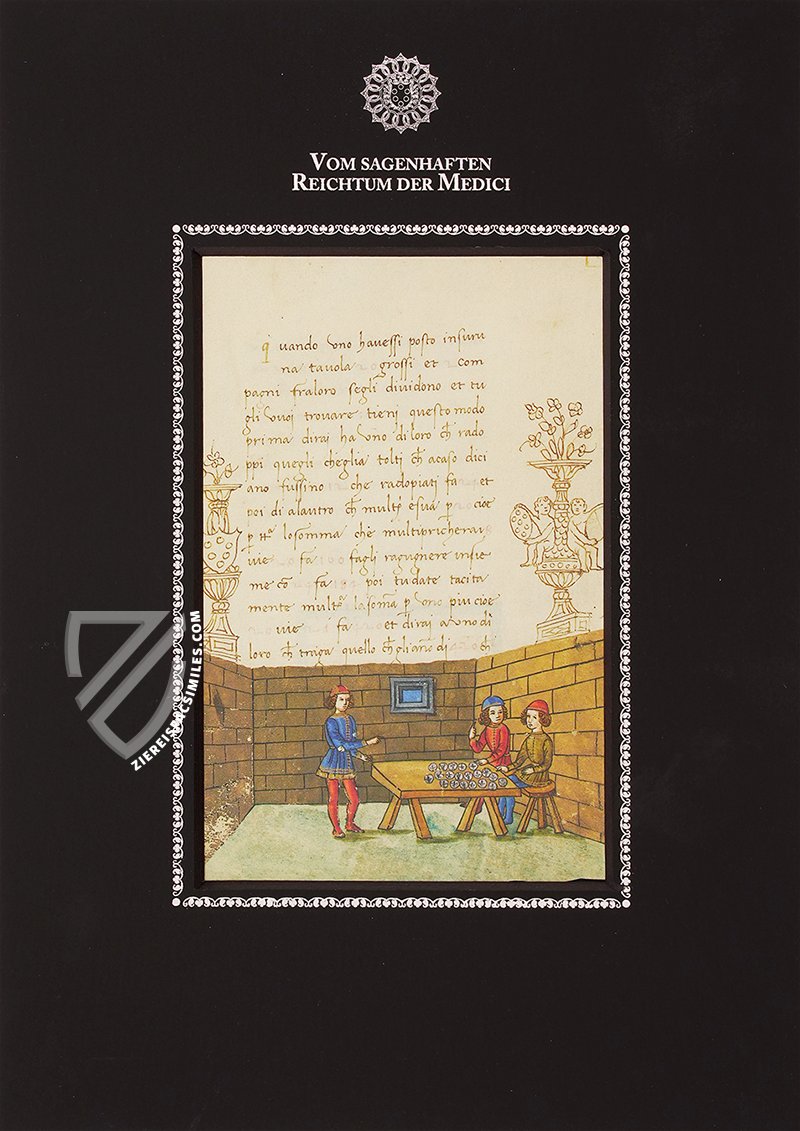 VOM SAGENHAFTEN
REICHTUM DER MEDICI
quando vno havessi posto insuru
na tavola grossi et com
pagni fraloro segli dividono et tu
gli vuoi trovare tieni questo modo
prima dirai ha vno di loro ch rado
ppi quegli cheglia tolti ch acaso dici
ano fussino che radopiati fa et
poi di alautro ch mult esua p cioe
p losomma che multipricherai
vie fa fagli ragugnere insie
me co fa poi tu date tacita
mente mult lasoma p vno piu cioe
vie fa et dirai a vno di
loro ch traga quello ch di ch
ZIEREIS FACSIMILES.COM